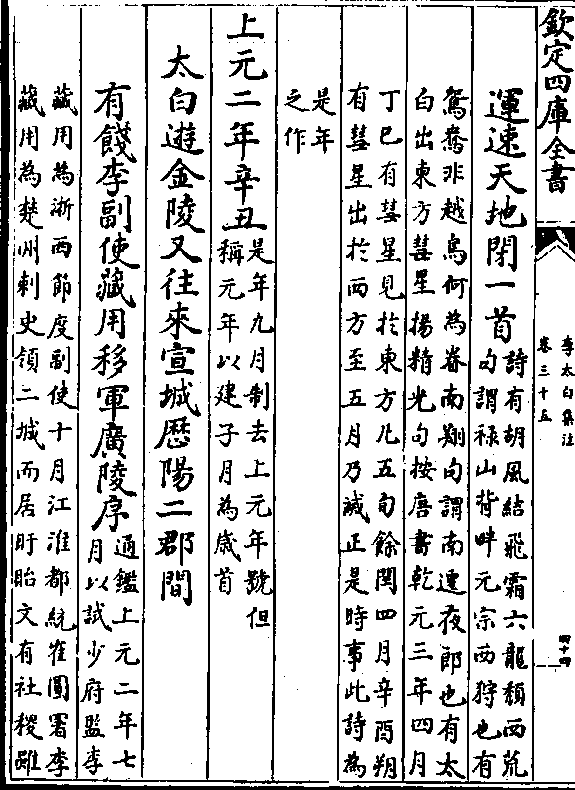 欽定四庫全書
李太白集注
卷三十五
四十四
運速天地閉一首
詩有胡風結飛霜六龍頽西荒
句謂祿山背畔元宗西狩也有
鴛鴦非越鳥何為眷南翔句謂南遷夜郎也有太
白出東方彗星揚精光句按唐書乾元三年四月
丁巳有彗星見於東方凡五旬餘閏四月辛酉朔
有彗星出於西方至五月乃滅正是時事此詩為
是年
之作
上元二年辛丑
是年九月制去上元年號但
稱元年以建子月為歲首
太白遊金陵又往來宣城歴陽二郡間
有餞李副使藏用移軍廣陵序
通鑑上元二年七
月以試少府監李
藏用為浙西節度副使十月江淮都統崔圓署李
藏用為楚州刺史領二城而居盱眙文有社稷雖